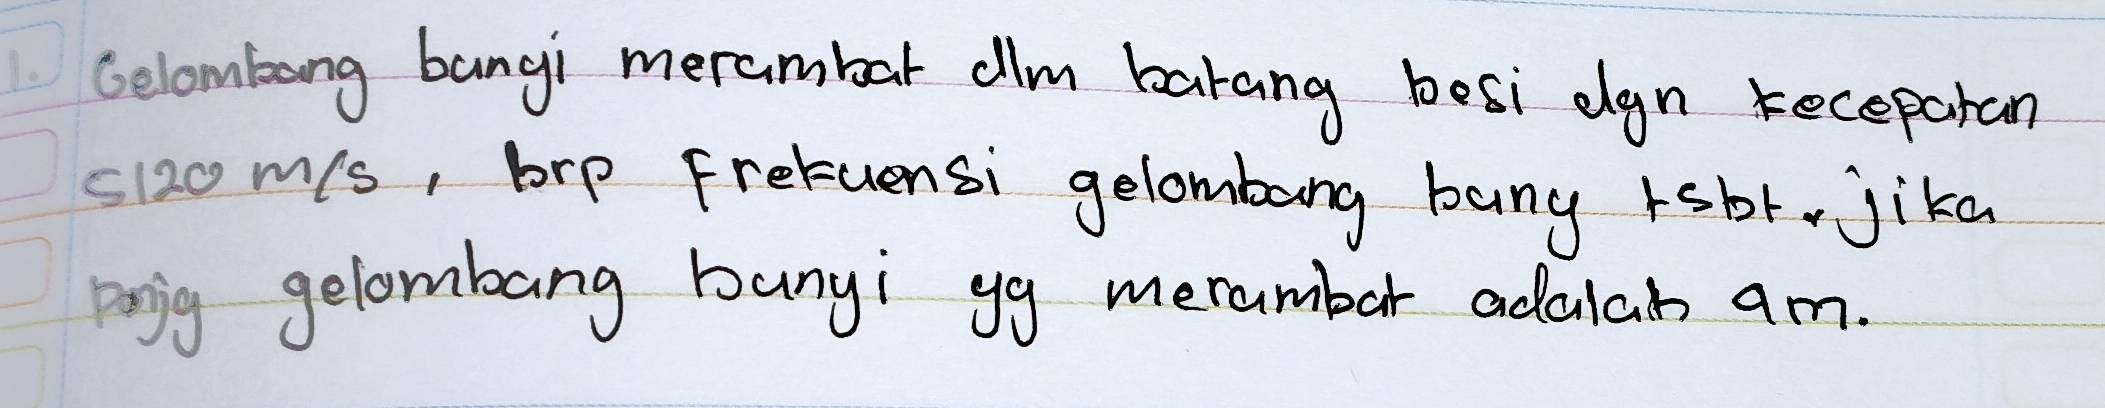 1. Gelombang bunyi merambat dlm batang besi dgn kecepatan
5120 m/s, brp frekuensi gelombang buny tsbt. jika
panjg gelombang bunyi yg merambat adalah 9m.